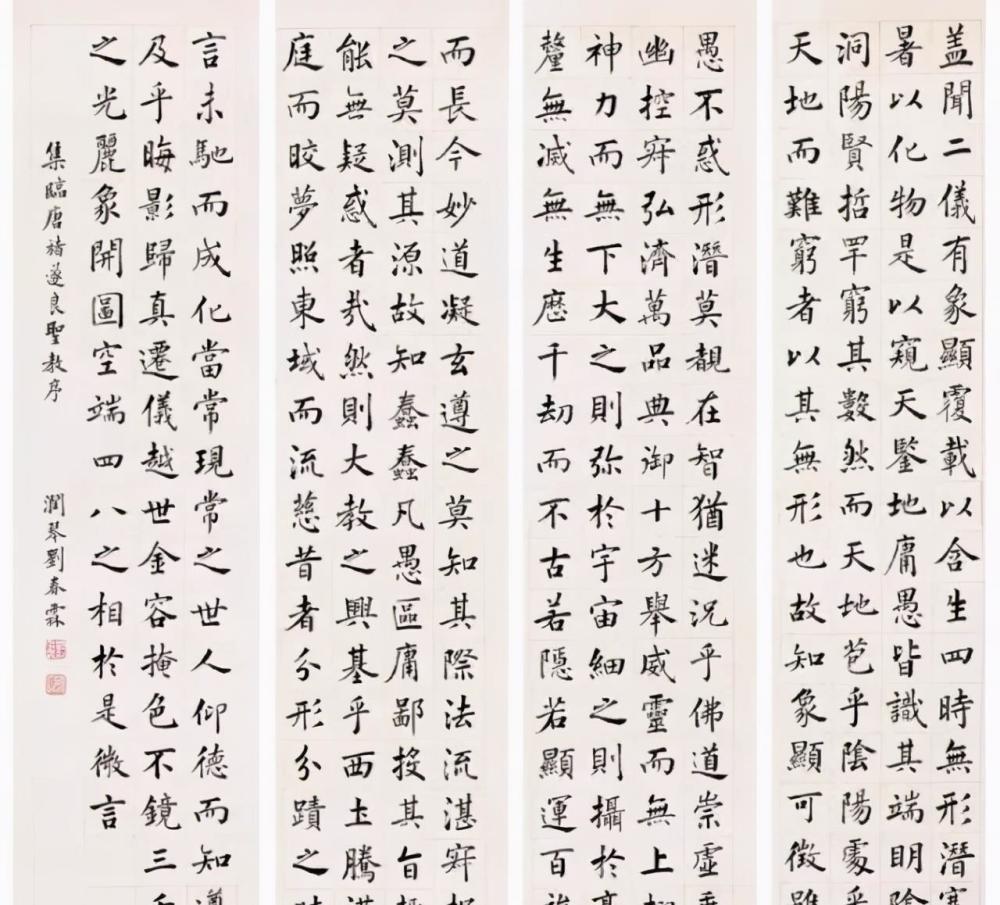 盖聞二儀有象顯覆載以含生四時無形潛寒
暑以化物是以窺天鑒地庸愚皆識其端明陰
洞陽賢哲罕窮其數然而天地苞乎陰陽處乎
天地而難窮者以其無形也故知象顯可徵雖
愚不惑形潛莫覩在智猶迷況乎佛道崇虛乘
幽控寂弘濟萬品典御十方舉威靈而無上抑
神力而無下大之則弥於宇宙細之則攝於毫
釐無滅無生歷千劫而不古若隱若顯運百福
而長今妙道凝玄遵之莫知其際法流湛寂挹
之莫測其源故知蠢蠢凡愚區庸鄙投其旨趣
能無疑惑者哉然則大教之興基乎西土騰漢
庭而皎夢照東域而流慈昔者分形分蹟之時
言未馳而成化當常現常之世人仰德而知遵
及乎晦影歸真遷儀越世金容掩色不鏡三千
之光麗象開圖空端四八之相於是微言
集臨唐褚遂良聖教序
潤琴劉春霖